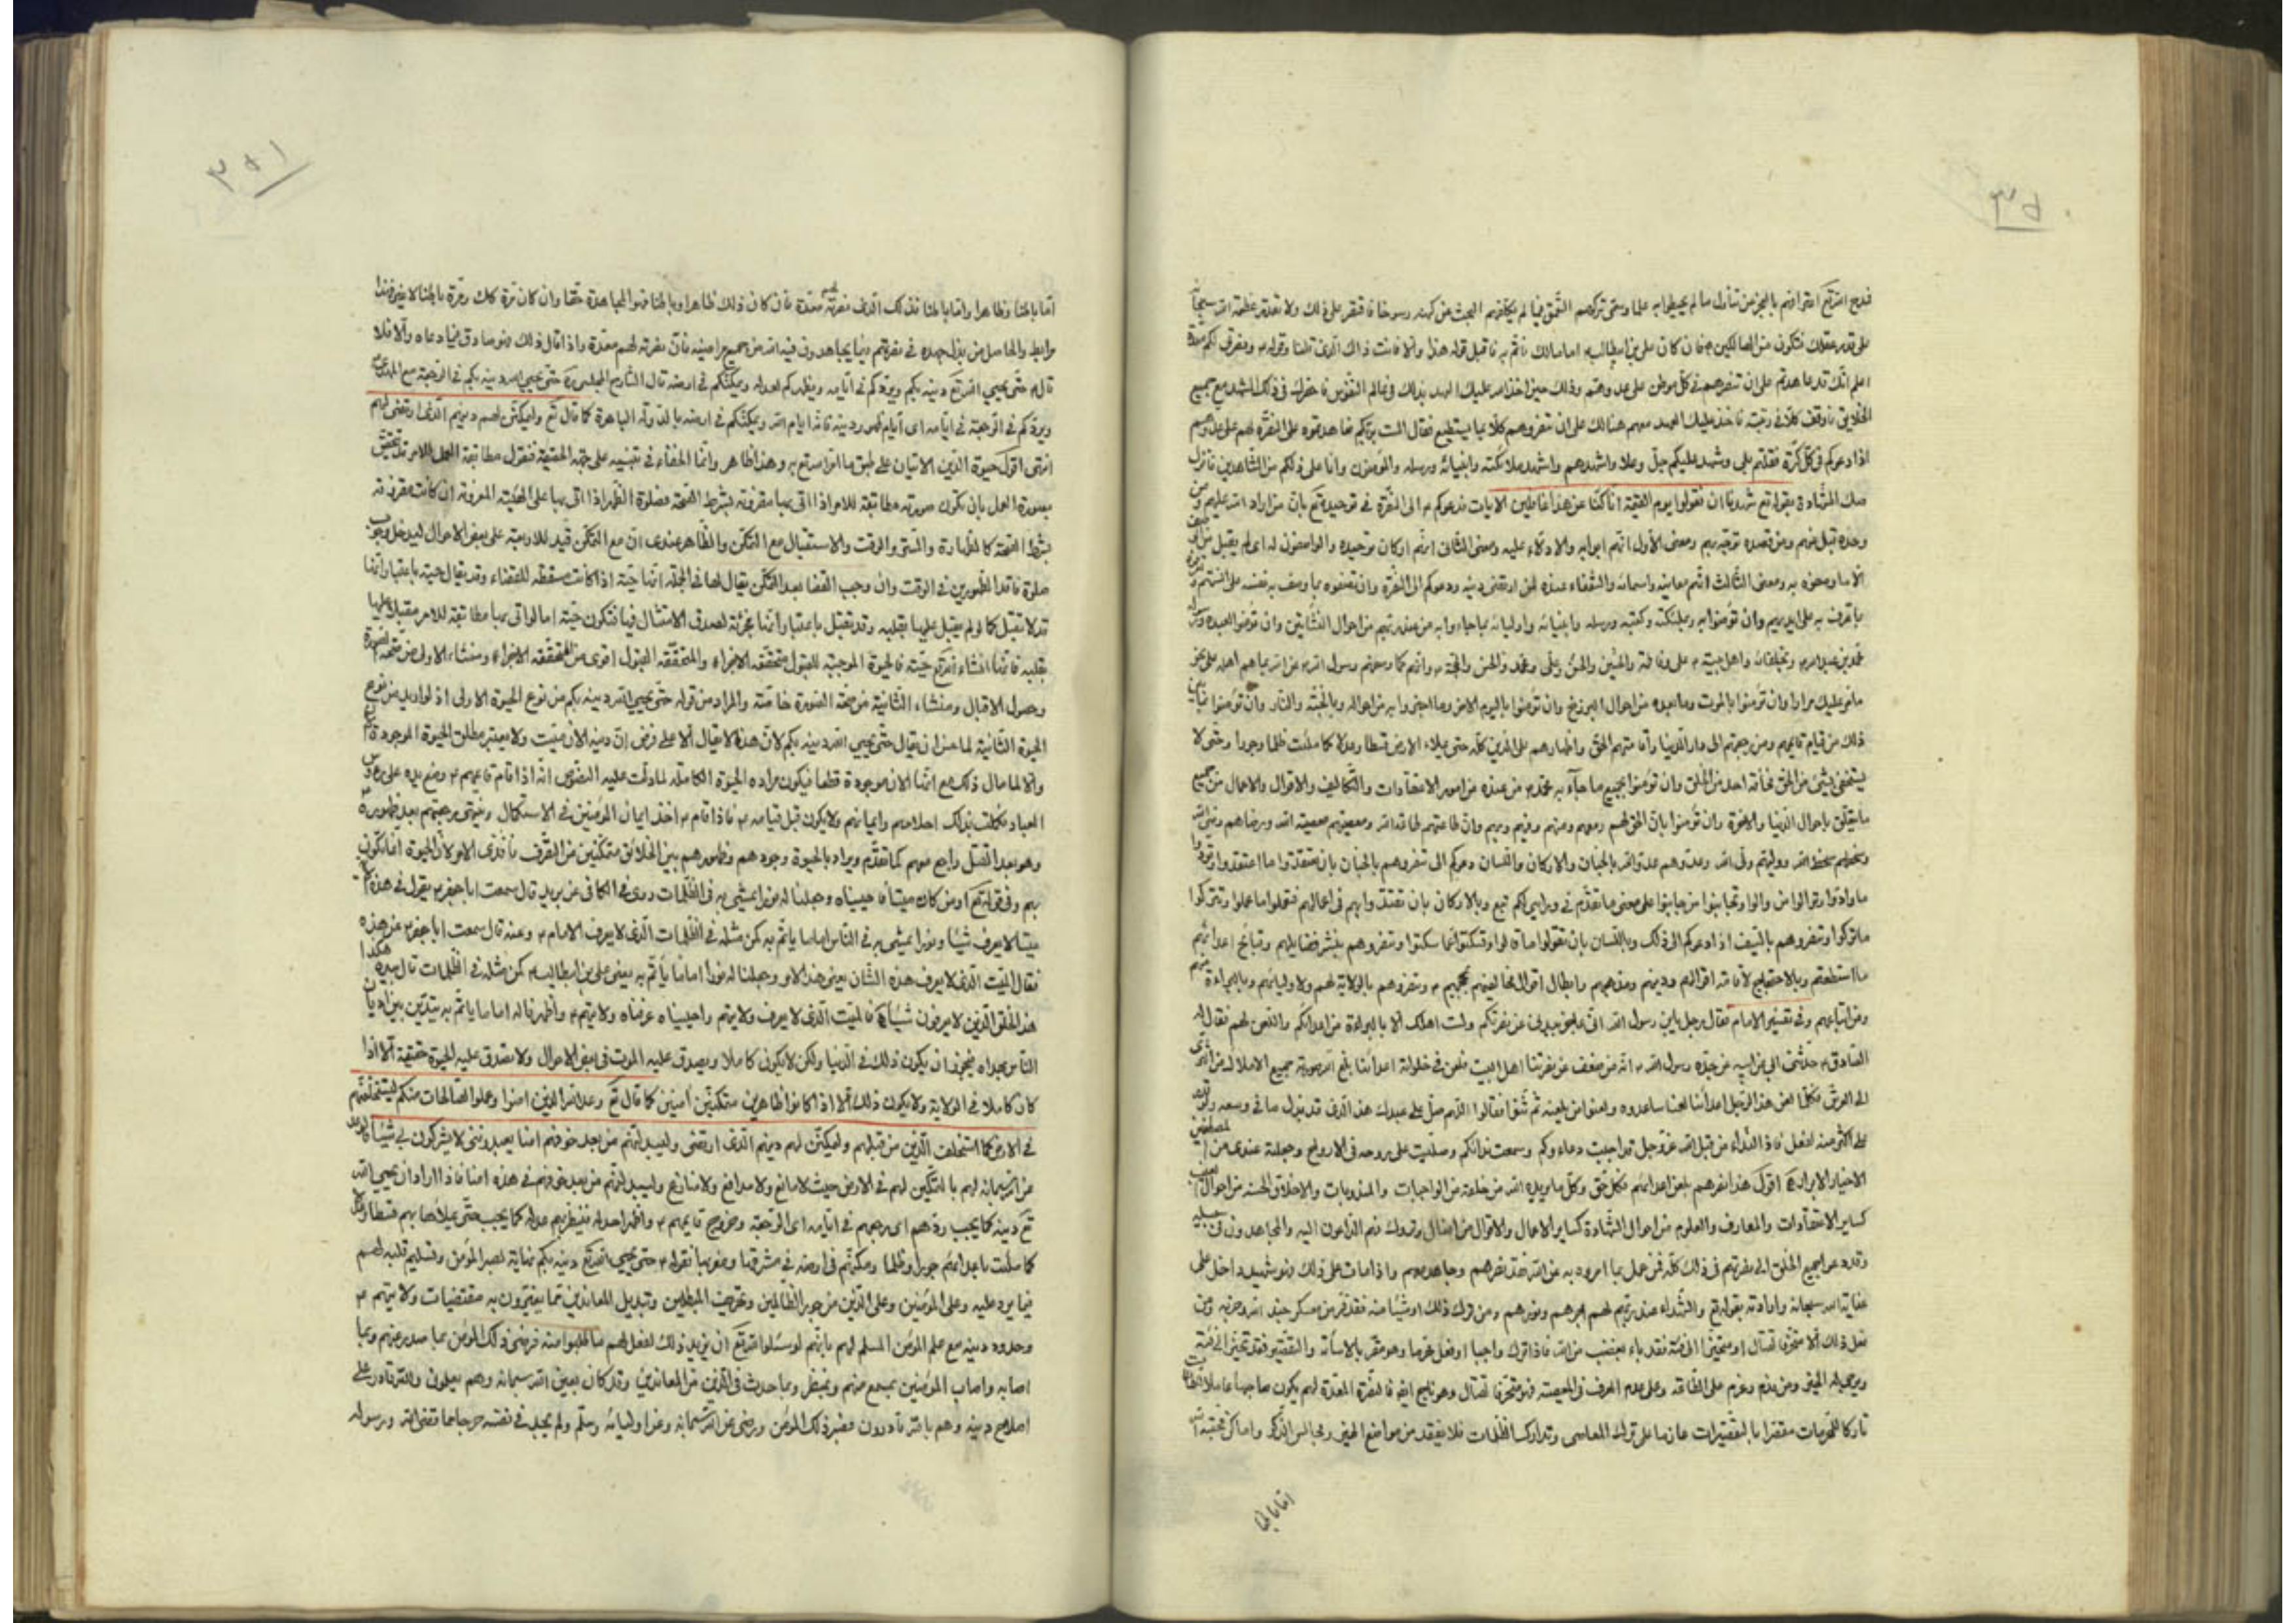 فمدح الله تعالى اعترافهم بالعجز عن تناول ما لم يحيطوا به علما وسمى تركهم التعمق فيما لم يكلفهم البحث عن كنهه رسوخا فاقتصر على ذلك ولا تقدر عظمة الله سبحانه
على قدر عقلك فتكون من الهالكين فان كان علي بن ابيطالب امامك فأتم به فاقبل قوله هذا والا فانت ذاك الذي قلنا وقوله ونصرتي لكم معدة
اعلم انك قد عاهدتم على ان تنصرهم في كل موطن على عدوهم وذلك حين اخذ الله عليك العهد بذلك في عالم النفوس فاحضرك في ذلك المشهد مع جميع
الخلايق فاوقف كلا في رتبته فاخذ عليك العهد معهم هنالك على ان تنصروهم كلا بما يستطيع فقال الست بربكم فعاهدتموه على النصرة لهم على عدوهم
اذا دعوكم في كل كرة فقلتم بلى وشهد عليكم جل وعلا واشهدهم واشهد ملائكته وانبيائه ورسله والمؤمنون وانا على ذلكم من الشاهدين فانزل
صك الشهادة بقوله تع شهدنا ان تقولوا يوم القيمة انا كنا عن هذا غافلين الايات فدعوكم الى النصرة في توحيده تع بان من اراد الله عليهم ومن
وحده قبل عنهم ومن قصده توجه بهم ومعنى الأول انهم ابوابه والادلاء عليه ومعنى الثاني انهم اركان توحيده والواصفون له اي لم يقبل من احد
الا ما وصفوه به ومعنى الثالث انهم معانيه واسمائه والشفعاء عنده لمن ارتضى دينه ودعوكم الى النصرة وان تصفوه بما وصف به نفسه على السنتهم
ما تعرف به على ايديهم وان تؤمنوا به وملئكته وكتبه ورسله وانبيائه واوليائه بما جاءوا به من عند ربهم من احوال النشأتين وان تؤمنوا لعبده ورسوله
محمد بن عبدالله وبخلفائه واهل بيته علي وفاطمة والحسن والحسين
مما مر عليك مرارا وان تؤمنوا بالموت وما بعده من احوال البرزخ وان تؤمنوا باليوم الاخر وما اخبروا به من احواله وبالجنة والنار وان تؤمنوا
ذلك من قيام قايمهم ومن رجعتهم الى دار الدنيا واقامتهم الحق واظهارهم على الدين كله حتى يملاء الارض قسطا وعدلا كما ملئت ظلما وجورا وحتى لا
يستخفي بشيء من الحق مخافة احد من الخلق وان تؤمنوا بجميع ما جاء به محمد من عنده من امور الاعتقادات والتكاليف والاقوال والاعمال من جميع
ما يتعلق باحوال الدنيا والاخرة وان تؤمنوا بان الحق لهم ومعهم ومنهم وفيهم وبهم وان طاعتهم طاعة الله ومعصيتهم معصية الله ورضاهم رضى الله
وسخطهم سخط الله ووليهم ولي الله وعدوهم عدو الله بالجنان والاركان واللسان ودعوكم الى تنصروهم بالجنان بان تعتقدوا ما اعتقدوا
ما وادوا وتوالوا من والوا وتجانبوا من جانبوا على معنى ما تقدم في ورايي لكم تبع وبالاركان بان تقتدوا بهم في اعمالهم فتعملوا ما عملوا وتتركوا
ما تركوا وتنصروهم بالسيف اذا دعوكم الى ذلك وباللسان بان تقولوا ما قالوا وتسكتوا عما سكتوا وتنصروهم بنشر فضايلهم وقبائح اعدائهم
ما استطعتم وبالاحتجاج لاقامة اقوالهم ودينهم ومذهبهم وابطال اقوال مخالفيهم بحججهم وتنصروهم بالولاية لهم ولاوليائهم وبالبراءة
ومن اتباعهم وفي تفسير الامام فقال رجل يابن رسول الله اني عاجز ببدني عن نصرتكم ولست املك الا بالبراءة من اعدائكم واللعن لهم فقال له
الصادق حدثني ابي عن ابيه عن جده رسول الله انه من ضعف عن نصرتنا اهل البيت فلعن في خلواته اعدائنا بلغ الله صوته جميع الاملاك من الثرى
الى العرش فكلما لعن هذا الرجل اعدائنا لعنا ساعدوه ولعنوا من يلعنه ثم ثنوا فقالوا اللهم صل على عبدك هذا الذي قد بذل ما في وسعه ولو قدر
على اكثر منه لفعل فاذا النداء من قبل الله عز وجل قد اجبت دعاءكم وسمعت ندائكم وصليت على روحه في الارواح وجعلته عندي من المصطفين
الاخيار الابرار اقول هذا نصرهم بلعن اعدائهم فكل حق وكل ما يريده الله من خلقه من الواجبات والمندوبات والاخلاق الحسنة من احوال
كساير الاعتقادات والمعارف والعلوم من احوال الشهادة كساير الاعمال والاقوال من افعال وتروك فهم الداعون اليه والمجاهدون في
وقد دعوا جميع الخلق الى نصرتهم في ذلك كله فمن عمل بما امروه به عن الله فقد نصرهم وجاهد معهم واذا مات على ذلك فهو شهيد داخل على
عناية الله سبحانه وارادته بقوله تع والشهداء عند ربهم لهم اجرهم ونورهم ومن ترك ذلك او شيئا منه فقد فر من معسكر جند الله وحزبه ومن
فعل ذلك الا متحرفا لقتال او متحيزا الى فئة فقد باء بغضب من الله فاذا ترك واجبا او فعل محرما وهو مقر بالاساءة والتقصير فقد تحيز الى فئة
ومن ندم وعزم على الطاقة وعلى عدم العود في المعصية فهو متحرفا لقتال فالنصرة المعدة لهم يكون صاحبها عاملا
تاركا للمحرمات مقرا بالتقصيرات عازما على ترك المعاصي وتدارك الظلمات فلا يفقد من مواضع الخير ومجالس الذكر واماكن
اما باطنا
٣٥١
اما باطنا وظاهرا واما باطنا فذلك الذي نصرته معدة فان كان ذلك ظاهرا وباطنا فهو المجاهد حقا وان كان
والحاصل من بذل جهده في نصرتهم فيما يجاهدون فيه الله من جميع مراضيه فان نصرته لهم معدة واذا قال ذلك فهو صادق فيما دعاه والا فلا
قال حتى يحيي الله تع دينه بكم ويردكم في ايامه ويظهركم لعدله ويمكنكم في ارضه قال الشارح المجلسي حتى يحيي الله دينه بكم في الرجعة مع المهدي
ويردكم في الرجعة في ايامه اي ايام ظهور دينه فانه ايام الله ويمكنكم في ارضه بالدولة الباهرة كما قال تع وليمكنن لهم دينهم الذي ارتضى لهم
انتهى اقول حيوة الدين الاتيان على طبق ما امر الله تع به وهذا ظاهر وانما الخفاء في تبينه على جهة الحقيقة فنقول مطابقة العمل للامر تتحقق
بصورة العمل بان يكون صورته مطابقة للامر اذا اتى بها مقرونة بشرط الصحة فصلوة الظهر اذا اتى بها على الهيئة المعروفة ان كانت مقرونة
بشرط الصحة كالطهارة والستر والوقت والاستقبال مع التمكن والظاهر عندي ان مع التمكن قيد للاربعة على بعض الاحوال ليدخل وجوب
صلوة فاقد الطهورين في الوقت وان وجب القضا بعد التمكن يقال لها في الجملة انها حية اذا كانت مسقطة للقضاء وقد يقال حية باعتبار انها
قد لا تقبل كما لو لم يقبل عليها بقلبه وقد تقبل باعتبار انها مجزئة لصدق الامتثال فيها فتكون حية اما لو اتى بها مطابقة للامر مقبلا عليها
بقلبه فانها انشاء الله تع حية فالحيوة الموجبة للقبول متحققة الاجزاء والمتحققة القبول اقوى من المتحققة الاجزاء ومنشاء الاولى من صحة الصورة
وحصول الاقبال ومنشاء الثانية من صحة الصورة خاصة والمراد من قوله حتى يحيي الله دينه بكم من نوع الحيوة الاولى اذ لو اريد من نوع
الحيوة الثانية لما حسن ان يقال حتى يحيي الله دينه بكم لان هذا لا يقال الا على فرض ان دينه الان ميت ولا يعتبر مطلق الحيوة الموجودة
والا لما قال ذلك مع انها الان موجودة قطعا فيكون مراده الحيوة الكاملة لما دلت عليه النصوص انه اذا قام قائمهم وضع يده على رؤس
العباد فكملت بذلك احلامهم وايمانهم ولا يكون قبل قيامه فاذا قام اخذ ايمان المؤمنين في الاستكمال وينتهي برجعتهم بعد ظهوره
وهو بعد القتل راجع معهم كما تقدم ويراد بالحيوة وجودهم وظهورهم بين الخلائق متمكنين من التصرف نافذي الامر لان الحيوة انما تكون
بهم وفي قوله تع اومن كان ميتا فاحييناه وجعلنا له نورا يمشي به في الظلمات روى في الكافي عن بريد قال سمعت ابا جعفر يقول في هذه
ميتا لا يعرف شيئا ونورا يمشي به في الناس اماما ياتم به كمن مثله في الظلمات الذي لا يعرف الامام وعنه قال سمعت ابا جعفر عن هذه
فقال الميت الذي لا يعرف هذا الشان يعني هذا الامر وجعلنا له نورا اماما يأتم به يعني علي بن ابيطالب كمن مثله في الظلمات قال بيده هكذا
هذا الخلق الذين لا يعرفون شيئا فالميت الذي لا يعرف ولايتهم واحييناه عرفناه ولايتهم واظهرنا له اماما ياتم به
الناس بهداه فيجوز ان يكون ذلك في الدنيا ولكن لا يكون كاملا ويصدق عليه الموت في بعض الاحوال ولا يصدق عليه الحيوة حقيقة الا اذا
كان كاملا في الولاية ولا يكون ذلك الا اذا كانوا ظاهرين متمكنين آمنين كما قال تع وعد الله الذين امنوا وعملوا الصالحات منكم ليستخلفنهم
في الارض كما استخلف الذين من قبلهم وليمكنن لهم دينهم الذي ارتضى وليبدلنهم من بعد خوفهم امنا يعبدونني لا يشركون بي شيئا
من الله سبحانه لهم بالتمكين لهم في الارض حيث لا مانع ولا مدافع ولا منازع وليبدلنهم من بعد خوفهم في هذه امنا فاذا اراد ان يحيي الله
تع دينه كما يجب ردهم اي رجعهم في ايامه اي الرجعة وخروج قايمهم واظهرهم لعدله كما يجب حتى يملأها بهم قسطا وعدلا
كما ملئت باعدائهم جورا وظلما ومكنهم في ارضه في مشرقها ومغربها فقوله حتى يحيي الله تع دينه بكم غاية لصبر المؤمن وتسليم قلبه لهم
فيما يرد عليه وعلى المؤمنين وعلى الدين من جور الظالمين وتحريف المبطلين وتبديل المعاندين مما يغيرون به مقتضيات ولايتهم
وحدود دينه مع علم المؤمن المسلم لهم بانهم لو سئلوا الله تع ان يزيد ذلك لفعل لهم ما طلبوا منه فرضى ذلك المؤمن بما صدر عنهم وبما
اصابه واصاب المؤمنين بسمع منهم وبمنظر وبما حدث في الدين من المعاندين وقد كان بعين الله سبحانه وهم يعلمون والله قادر على
اصلاح دينه وهم بالله قادرون فصبر ذلك المؤمن ورضى عن الله سبحانه وعن اوليائه وسلم ولم يجد في نفسه حرجا مما قضى الله ورسوله